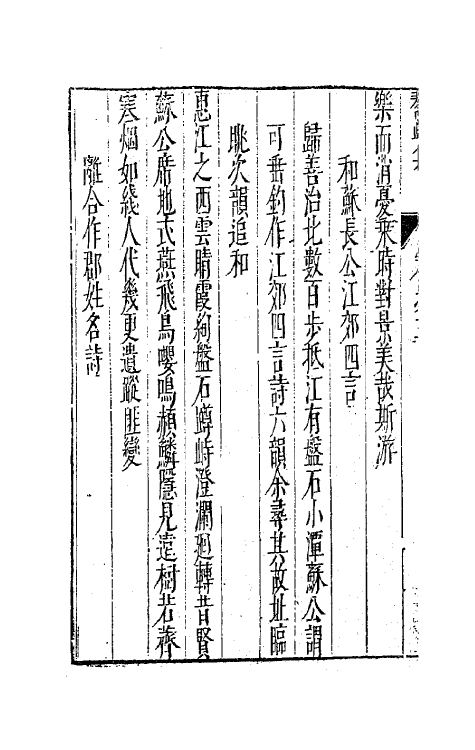 樂而消憂乘時對景美哉斯游
和蘇長公江郊四言
歸善治北數百步抵江有盤石小潭蘇公謂
可垂釣作江郊四言詩六韻余尋其故址臨
眺次韻追和
惠江之西雲晴霞絢盤石嶟峙澄瀾廻轉昔賢
蘇公席地式燕飛鳥嚶鳴頳鱗隱見遠樹若薺
寒烟如綫人代幾更遺蹤匪變
離合作郡姓名詩